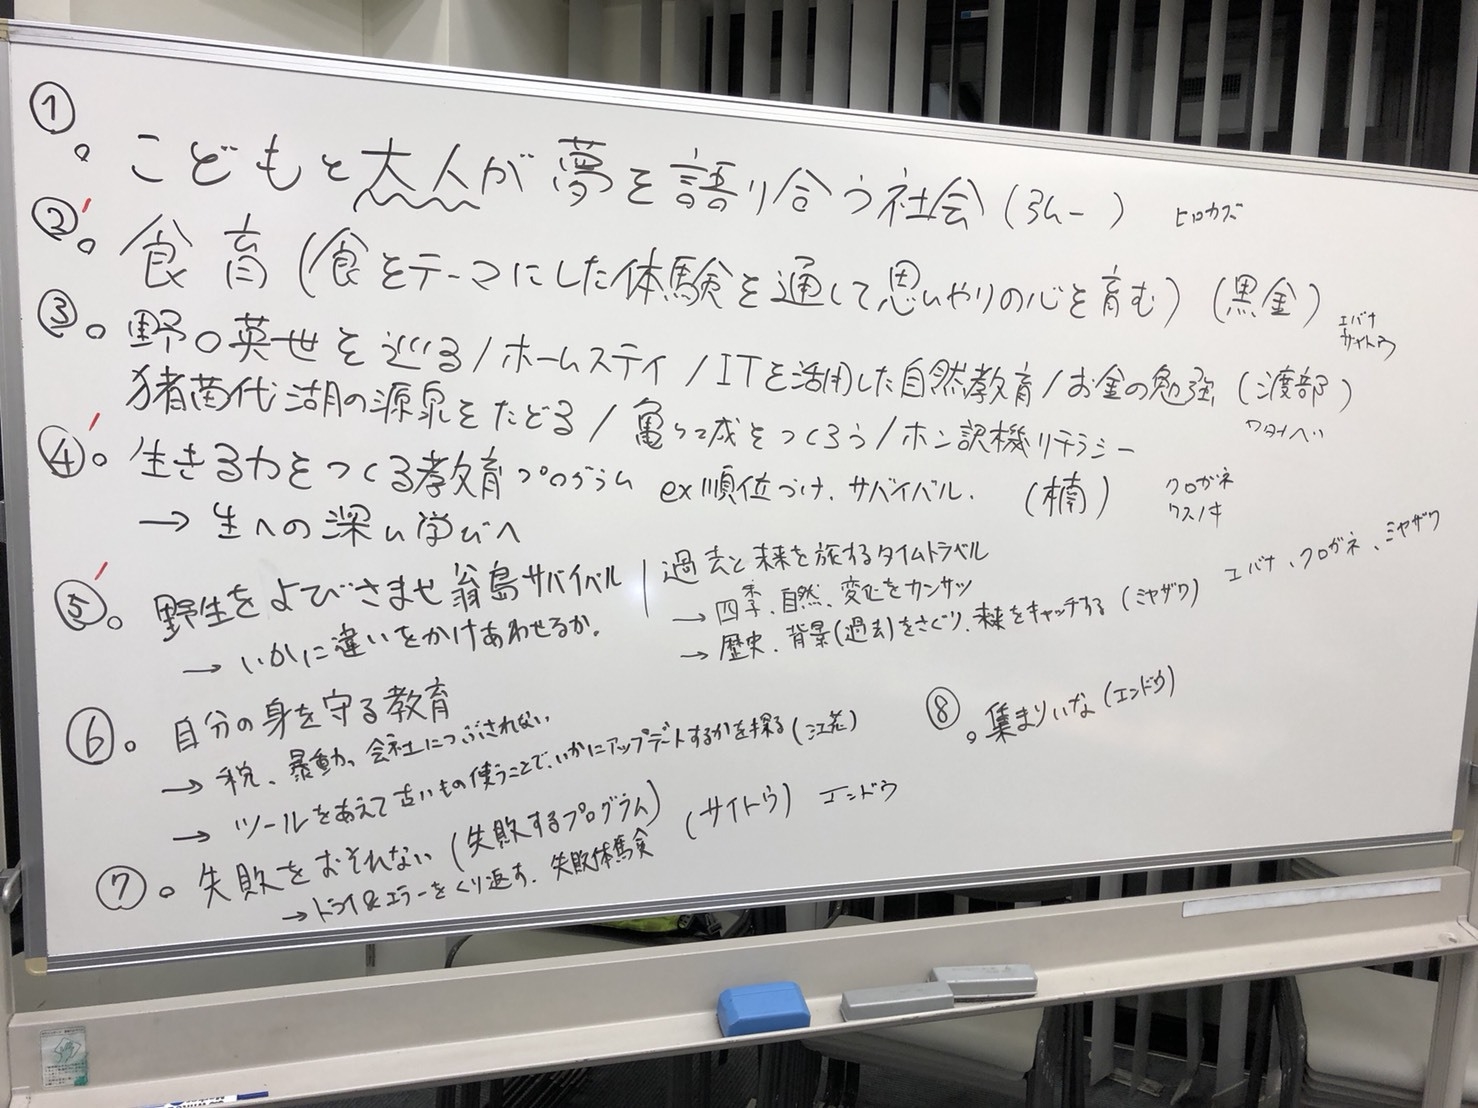 ①。こどもと大人が夢を語り合う社会(ラムー) ヒロカズ
②。食育(食をテーマにした体験を通して思いやりの心を育む)(黒金) エバナ
サイトウ
③。野口英世を巡る/ホームステイ/ITを活用した自然教育/お金の勉強(渡部)
猪苗代湖の源泉をたどる/亀ヶ城をつくろう/ホン訳機リテラシー ワタナベ
④。生きる力をつくる教育プログラム ex順位づけ、サバイバル. (楠) クロガネ
クスノキ
→生への深い学びへ
⑤。野生をよびさませ翁島サバイバル
→いかに違いをかけあわせるか。
過去と未来を旅するタイムトラベル
→四季、自然、変化をカンサツ
→歴史、背景(過去)をさぐり、未来をキャッチする(ミヤザワ) エバナ、クロガネ、ミヤザワ
⑥。自分の身を守る教育
→税、暴動、会社につぶされない
→ツールをあえて古いもの使うことで、いかにアップデートするかを探る(江花)
⑦。失敗をおそれない(失敗するプログラム) (サイトウ) エンドウ
→トライ&エラーをくり返す、失敗体験
⑧。集まりいな(エンドウ)